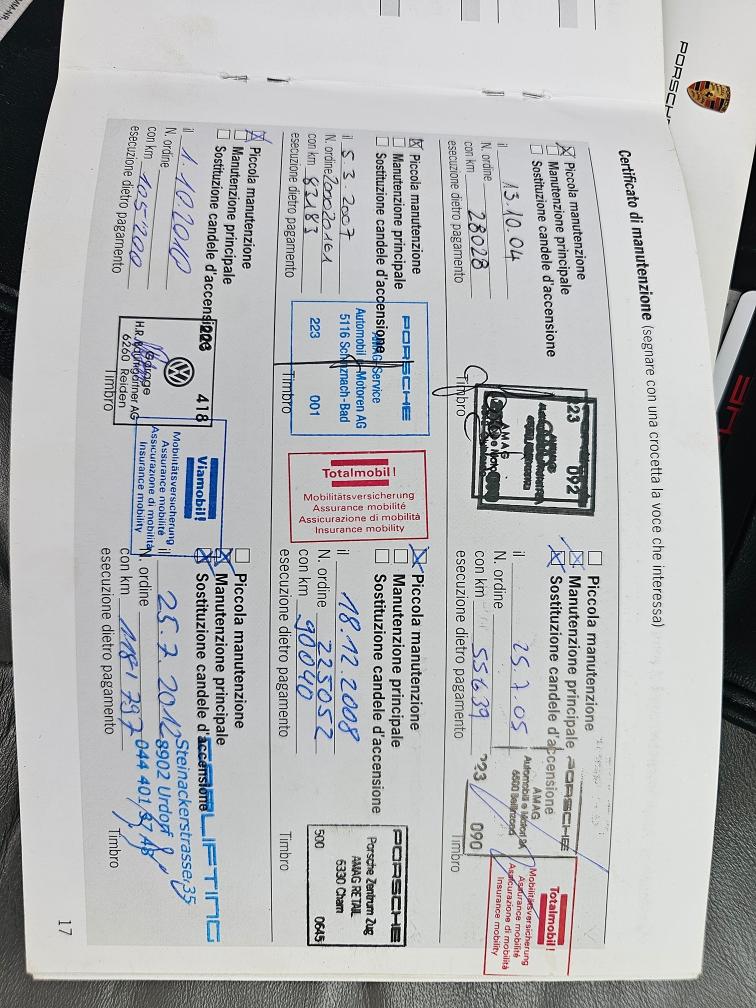 PORSCHE
Certificato di manutenzione (segnare con una crocetta la voce che interessa)
Piccola manutenzione
Manutenzione principale
Sostituzione candele d'accensione
il 13.10.04
N. ordine
con km 28028
esecuzione dietro pagamento
Timbro
092
AMAG
Piccola manutenzione
Manutenzione principale
Sostituzione candele d'accensione
il 25.7.05
N. ordine
con km 55639
esecuzione dietro pagamento
Timbro
PORSCHE
AMAG
Automobili e Motori SA
6500 Bellinzona
223 090
Totalmobil!
Mobilitätsversicherung
Assurance mobilité
Assicurazione di mobilità
Insurance mobility
Piccola manutenzione
Manutenzione principale
Sostituzione candele d'accensione
il 5.3.2007
N. ordine 200020161
con km 83183
esecuzione dietro pagamento
Timbro
PORSCHE
AMAG Service
Automobil Motoren AG
5116 Schinznach-Bad
223 001
Totalmobil!
Mobilitätsversicherung
Assurance mobilité
Assicurazione di mobilità
Insurance mobility
Piccola manutenzione
Manutenzione principale
Sostituzione candele d'accensione
il 18.12.2008
N. ordine 225052
con km 90040
esecuzione dietro pagamento
Timbro
PORSCHE
Porsche Zentrum Zug
AMAG RETAIL
6330 Cham
500 0645
Piccola manutenzione
Manutenzione principale
Sostituzione candele d'accensione
il 1.10.2010
N. ordine
con km 105200
esecuzione dietro pagamento
418
Garage
6260 Reiden
Viamobil!
Mobilitätsversicherung
Assurance mobilité
Assicurazione di mobilità
Insurance mobility
Piccola manutenzione
Manutenzione principale
Sostituzione candele d'accensione
il 25.7.2012
N. ordine
con km 118'797
esecuzione dietro pagamento
Timbro
CARLIFTING
Steinackerstrasse 35
8902 Urdorf
044 401 37 48
17